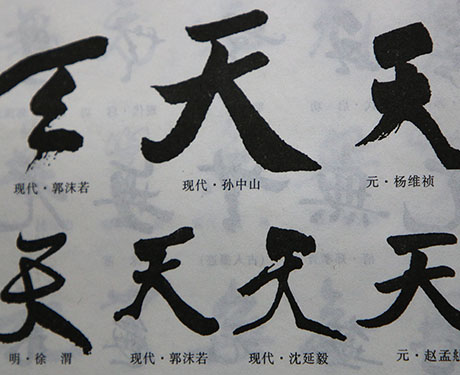 天 天 天
现代·郭沫若 现代·孙中山 元·杨维祯
天 天 天 天
明·徐渭 现代·郭沫若 现代·沈延毅 元·赵孟頫